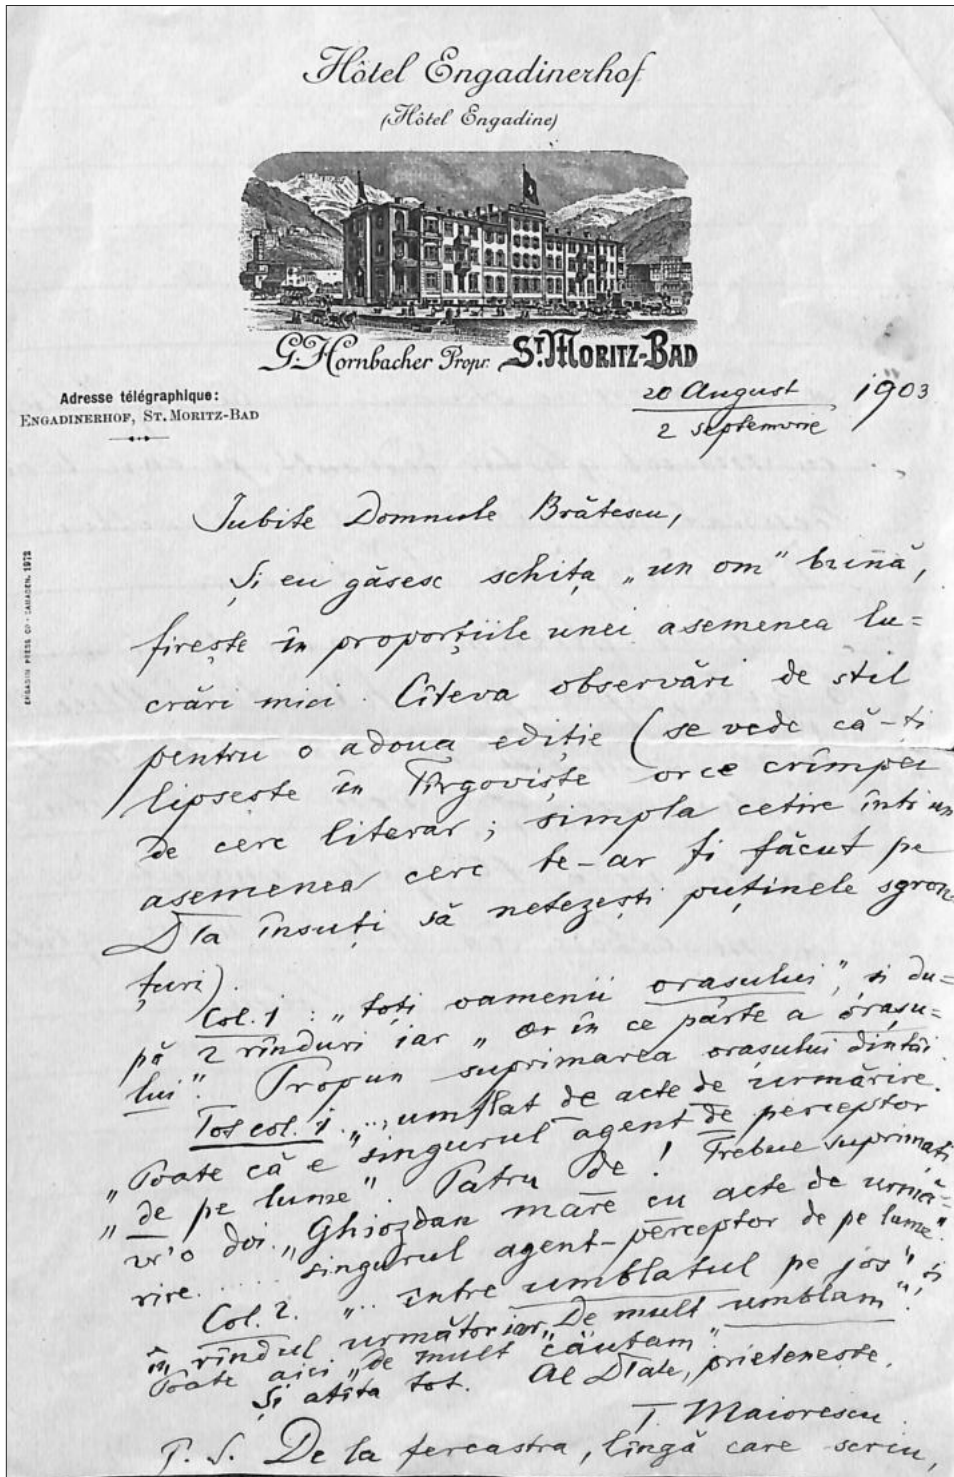 Hôtel Engadinerhof
(Hôtel Engadine)
G. Hornbacher Propr. St. Moritz-Bad
Adresse télégraphique:
Engadinerhof, St. Moritz-Bad
20 August 1903
2 Septemvrie
Iubite Domnule Brătescu,
Și eu găsesc schița „un om" bună,
firește în proporțiile unei asemenea lu=
crări mici. Cîteva observări de stil
pentru o adoua ediție (se vede că-ți
lipsește în Tîrgoviște orce crîmpei
de cerc literar; simpla cetire într'un
asemenea cerc te-ar fi făcut pe
Dta însuți să netezești puținele sgron
țuri).
Col. 1: „toți oamenii orașului", și du=
pă 2 rînduri iar „Or în ce parte a orașu=
lui". Propun suprimarea orașului dintâi.
Tot col. 1 „... umflat de acte de urmărire.
„Poate că e singurul agent de perceptor
„de pe lume". Patru de! Trebue suprimați
vr'o doi. „Ghiozdan mare cu acte de urmă=
rire..... singurul agent-perceptor de pe lume".
Col. 2. „... între umblatul pe jos" și
în rîndul următor iar „De mult umblam".
Poate aici „de mult căutam".
Și atîta tot. Al DTale, prietenește,
T. Maiorescu.
P. S. De la fereastra, lîngă care scriu,